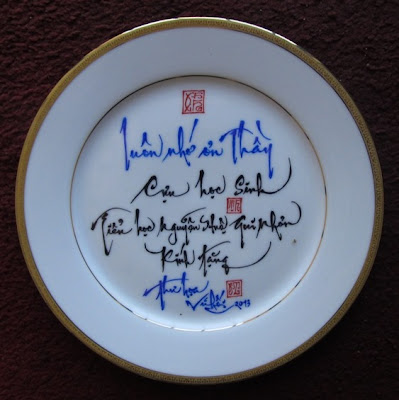 luôn nhớ ơn Thầy
Cựu học Sinh
Tiểu học Nguyễn Huệ Qui Nhơn
Kính tặng
Thư họa
2013